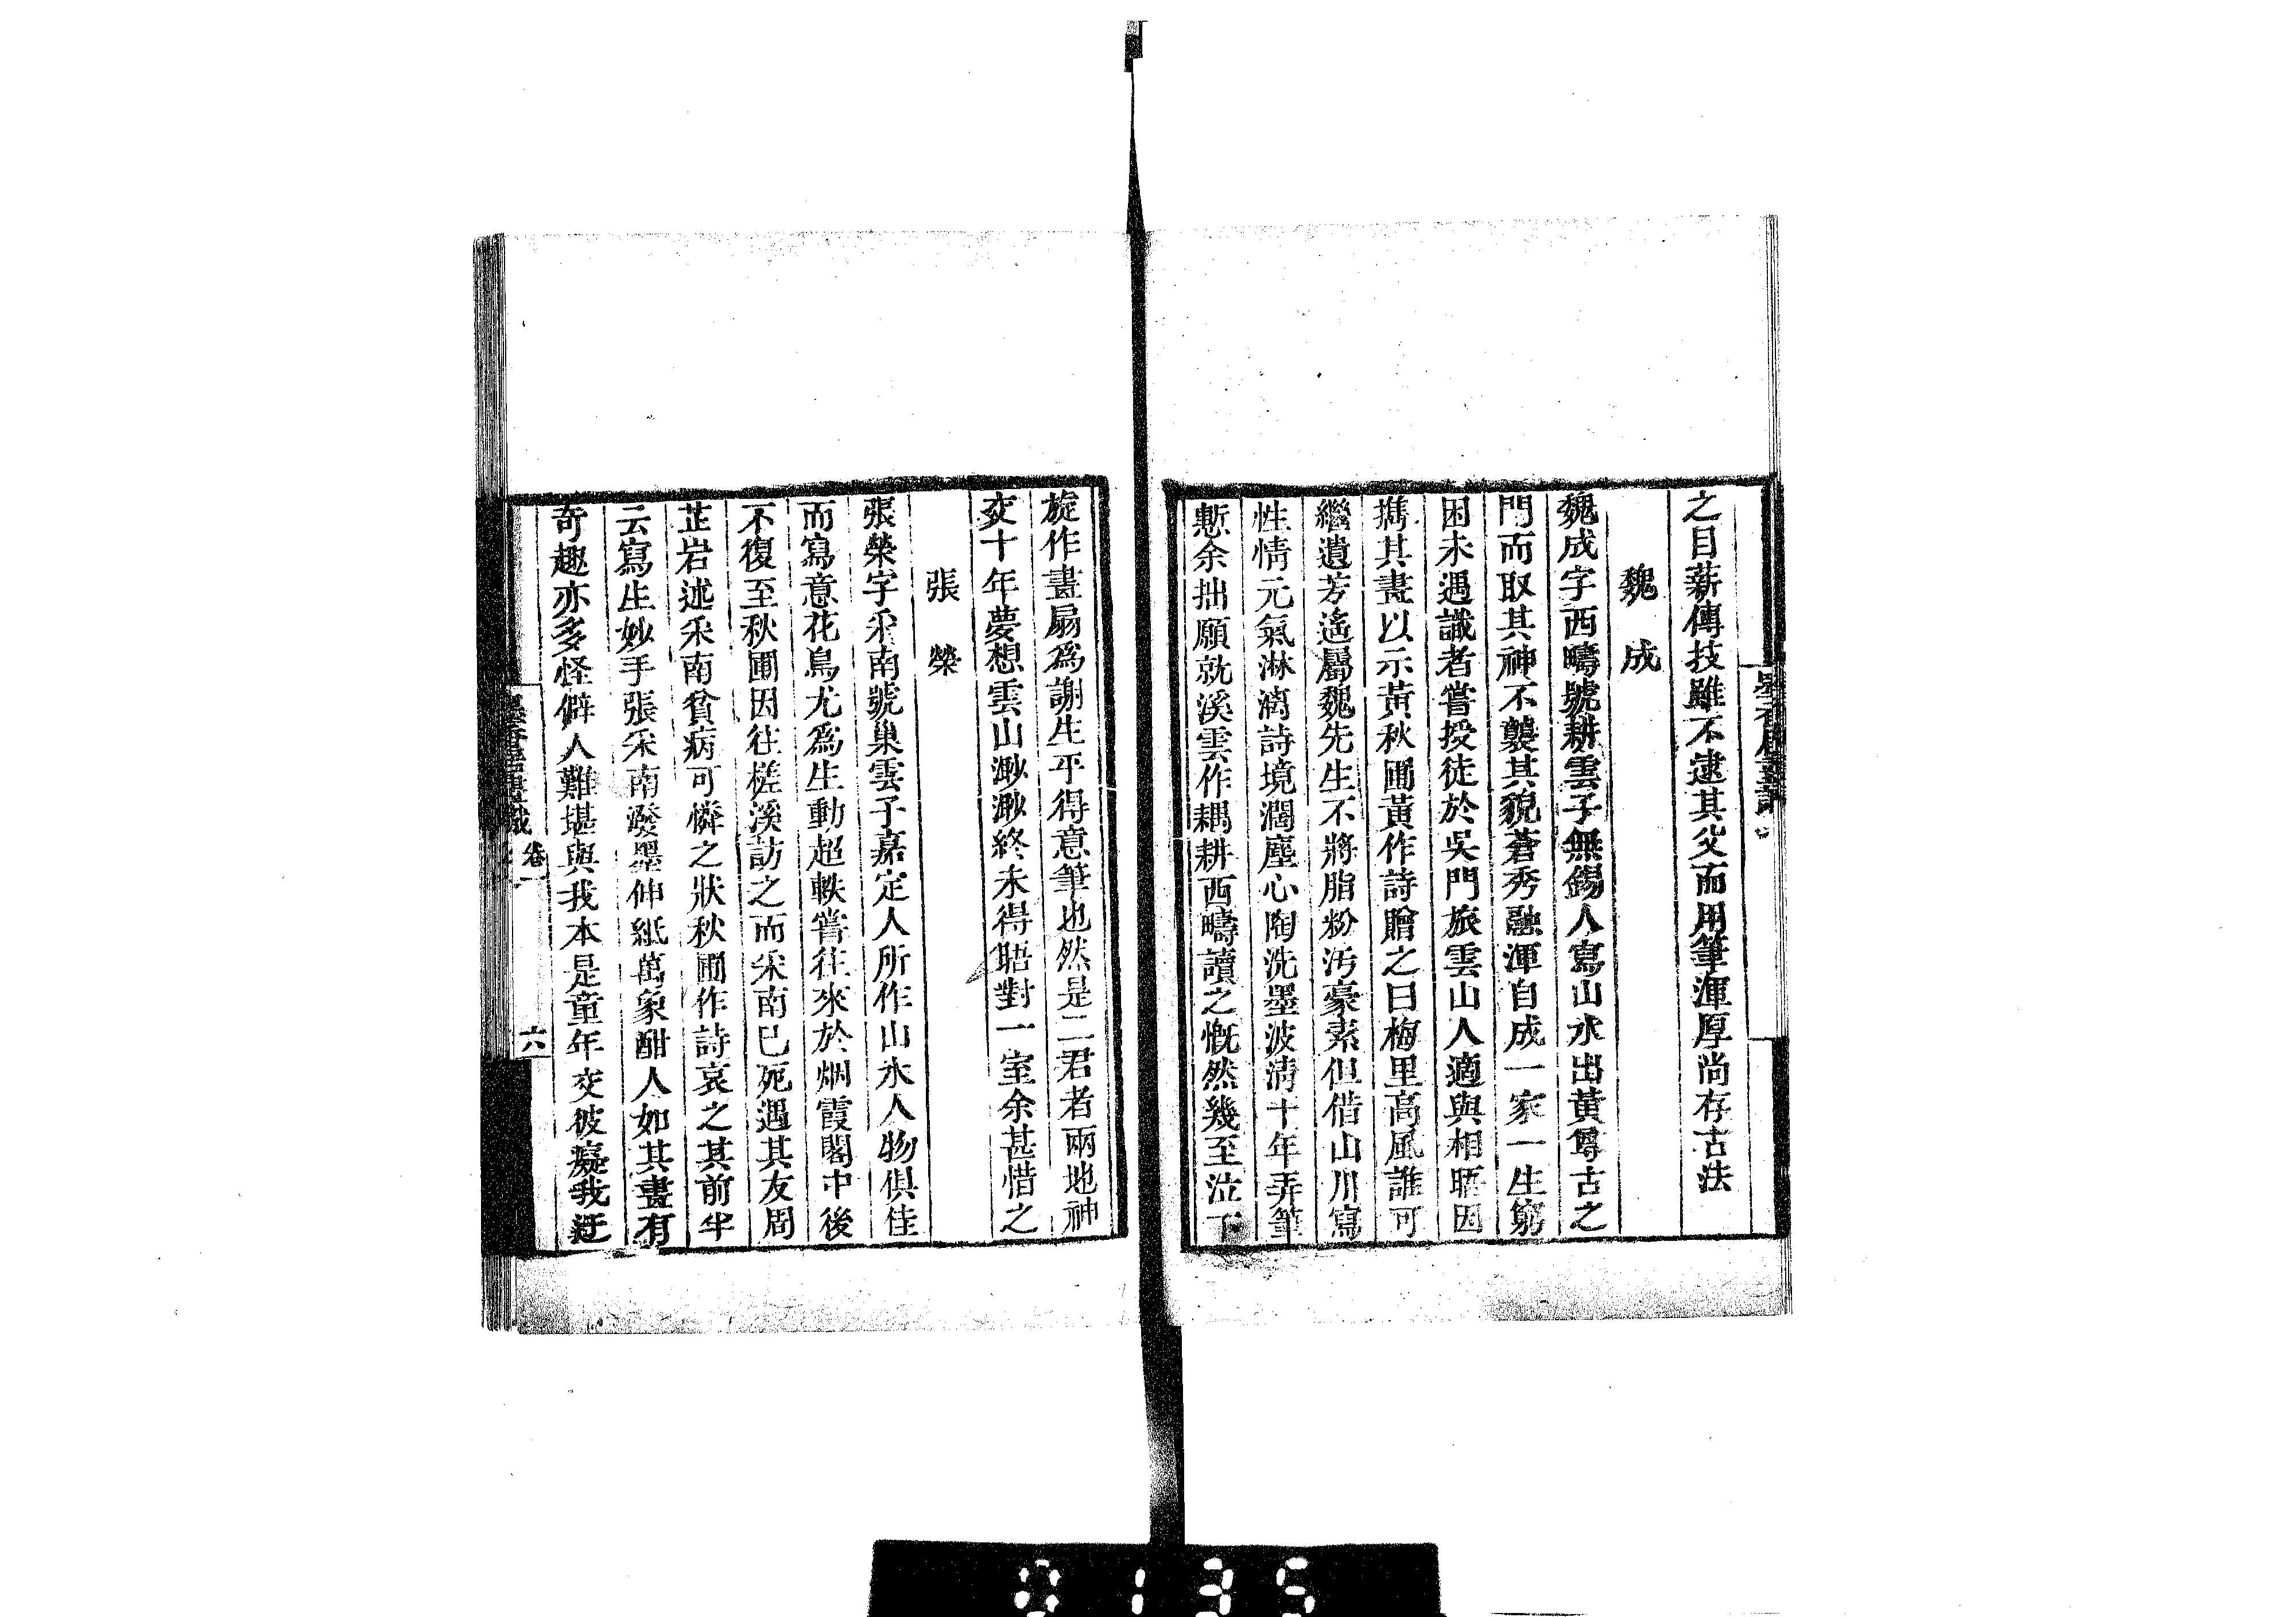 之目薪傳技雖不逮其父而用筆渾厚尚存古法
魏成
魏成字西疇號耕雲子無錫人寫山水出黃尊古之
門而取其神不襲其貌蒼秀融渾自成一家一生窮
困未遇識者嘗授徒於吳門旅雲山人適與相晤因
攜其畫以示黃秋圃黃作詩贈之曰梅里高風誰可
繼遺芳遙屬魏先生不將脂粉汚豪素但借山川寫
性情元氣淋漓詩境濶塵心陶洗墨波淸十年弄筆
慙余拙願就溪雲作耦耕西疇讀之慨然幾至泣下
旋作畫扇爲謝生平得意筆也然是二君者兩地神
交十年夢想雲山渺渺終未得晤對一室余甚惜之
張榮
張榮字采南號巢雲子嘉定人所作山水人物俱佳
而寫意花鳥尤爲生動超軼嘗往來於烟霞閣中後
不復至秋圃因往槎溪訪之而采南已死遇其友周
芷岩述采南貧病可憐之狀秋圃作詩哀之其前半
云寫生妙手張采南潑墨伸紙萬象酣人如其畫有
奇趣亦多怪僻人難堪與我本是童年交彼癡我迂
卷一
六
0135